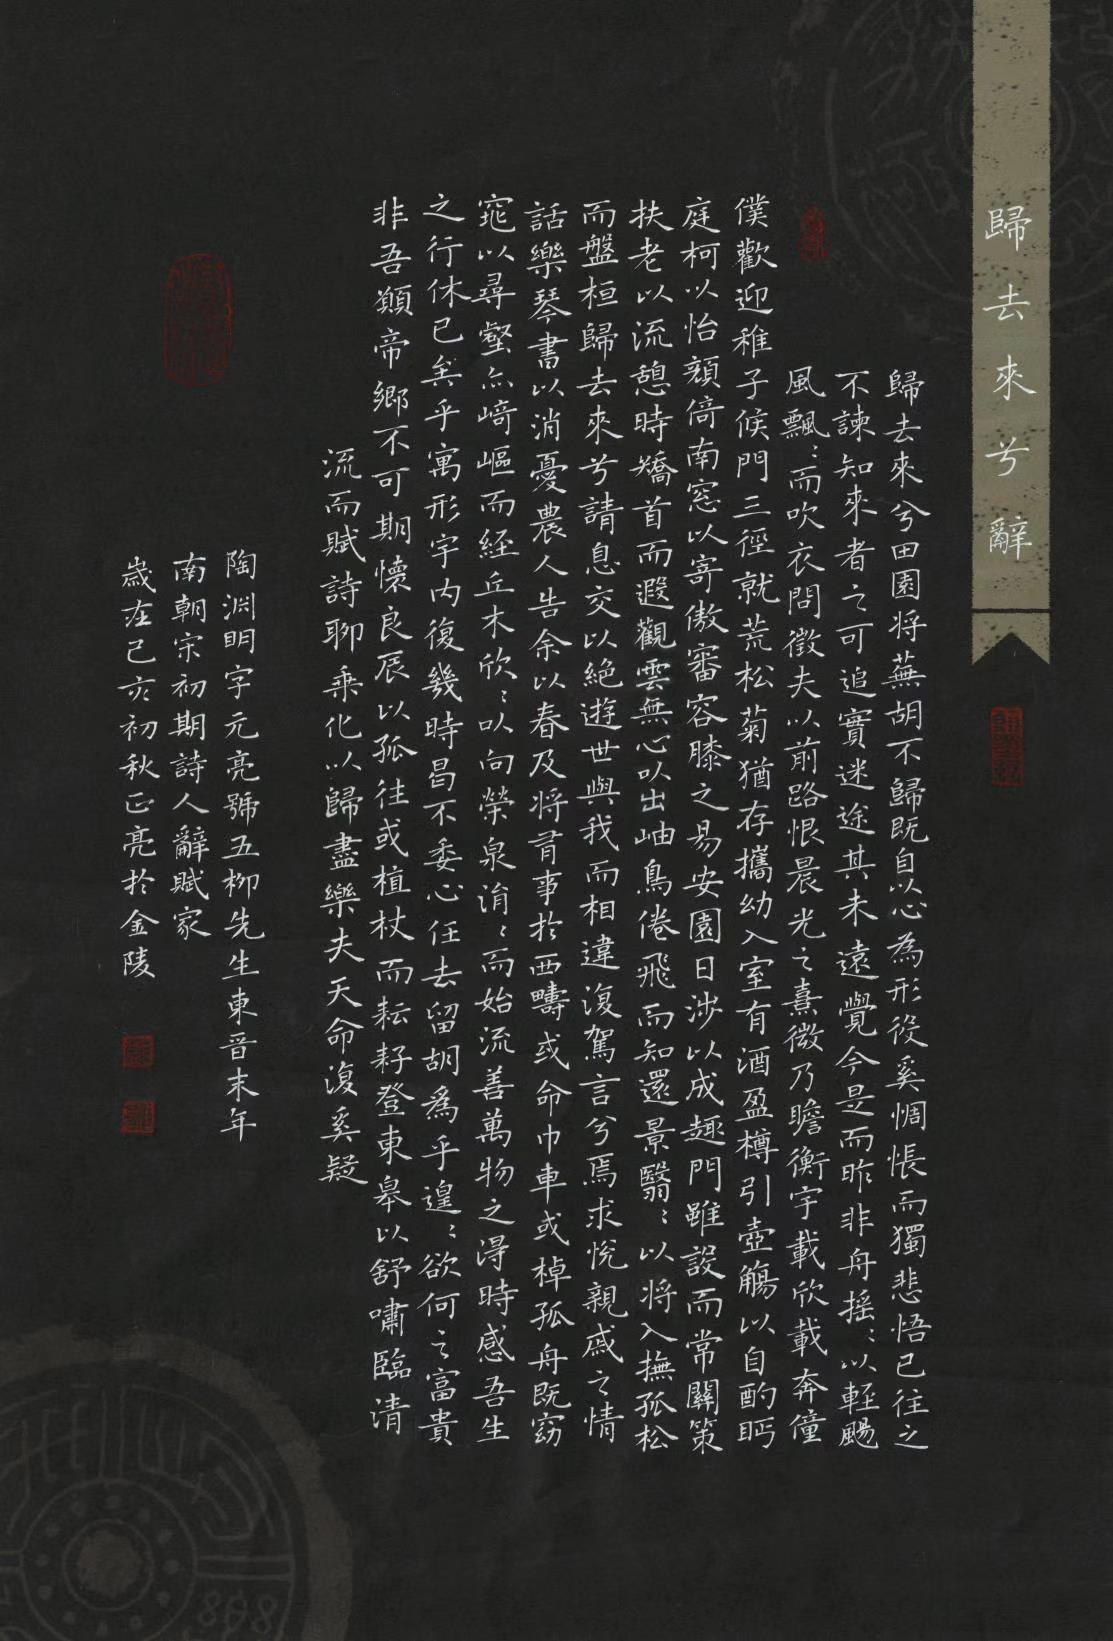 歸去來兮辭
歸去來兮田園将蕪胡不歸既自以心為形役奚惆悵而獨悲悟已往之
不諫知來者之可追實迷途其未遠覺今是而昨非舟摇:以輕颺
風飄:而吹衣問徵夫以前路恨晨光之熹微乃瞻衡宇載欣載奔僮
僕歡迎稚子候門三徑就荒松菊猶存攜幼入室有酒盈樽引壺觴以自酌眄
庭柯以怡顏倚南窓以寄傲審容膝之易安園日涉以成趣門雖設而常關策
扶老以流憩時矯首而遐觀雲無心以出岫鳥倦飛而知還景翳:以将入撫孤松
而盤桓歸去來兮請息交以絕遊世與我而相違復駕言兮焉求悅親戚之情
話樂琴書以消憂農人告余以春及将有事於西疇或命巾車或棹孤舟既窈
窕以尋壑亦崎嶇而經丘木欣:以向榮泉涓:而始流善萬物之得時感吾生
之行休已矣乎寓形宇内復幾時曷不委心任去留胡為乎遑:欲何之富貴
非吾願帝鄉不可期懷良辰以孤往或植杖而耘耔登東皋以舒嘯臨清
流而賦詩聊乘化以歸盡樂夫天命復奚疑
陶淵明字元亮號五柳先生東晉末年
南朝宋初期詩人辭賦家
歲在己亥初秋正亮於金陵